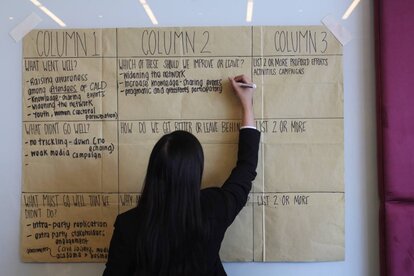 COLUMN 1
WHAT WENT WELL?
- RAISING AWARENESS
AMONG ATTENDEES OF CALD
- KNOWLEDGE-SHARING EFFORTS
- WIDENING THE NETWORK
- YOUTH, WOMEN (SECTORAL
PARTICIPATION)
COLUMN 2
WHICH OF THESE SHOULD WE IMPROVE OR LEAVE?
- WIDENING THE NETWORK
- INCREASE KNOWLEDGE-SHARING EFFORTS
- PRAGMATIC AND GRASSROOTS PARTICIPATORY
COLUMN 3
LIST 2 OR MORE PROPOSED EFFORTS
ACTIVITIES CAMPAIGNS
WHAT DIDN'T GO WELL?
- NO TRICKLING-DOWN (RE
ECHOING)
- WEAK MEDIA CAMPAIGN
HOW DO WE GET BETTER OR LEAVE BEHIND
LIST 2 OR MORE
WHAT MUST GO WELL THAT WE
DIDN'T DO?
- INTRA-PARTY REPLICATION
- EXTRA PARTY STAKEHOLDER
ENGAGEMENT
CIVIL SOCIETY, MEDIA
ACADEME &
WHY
LIST 2 OR MORE